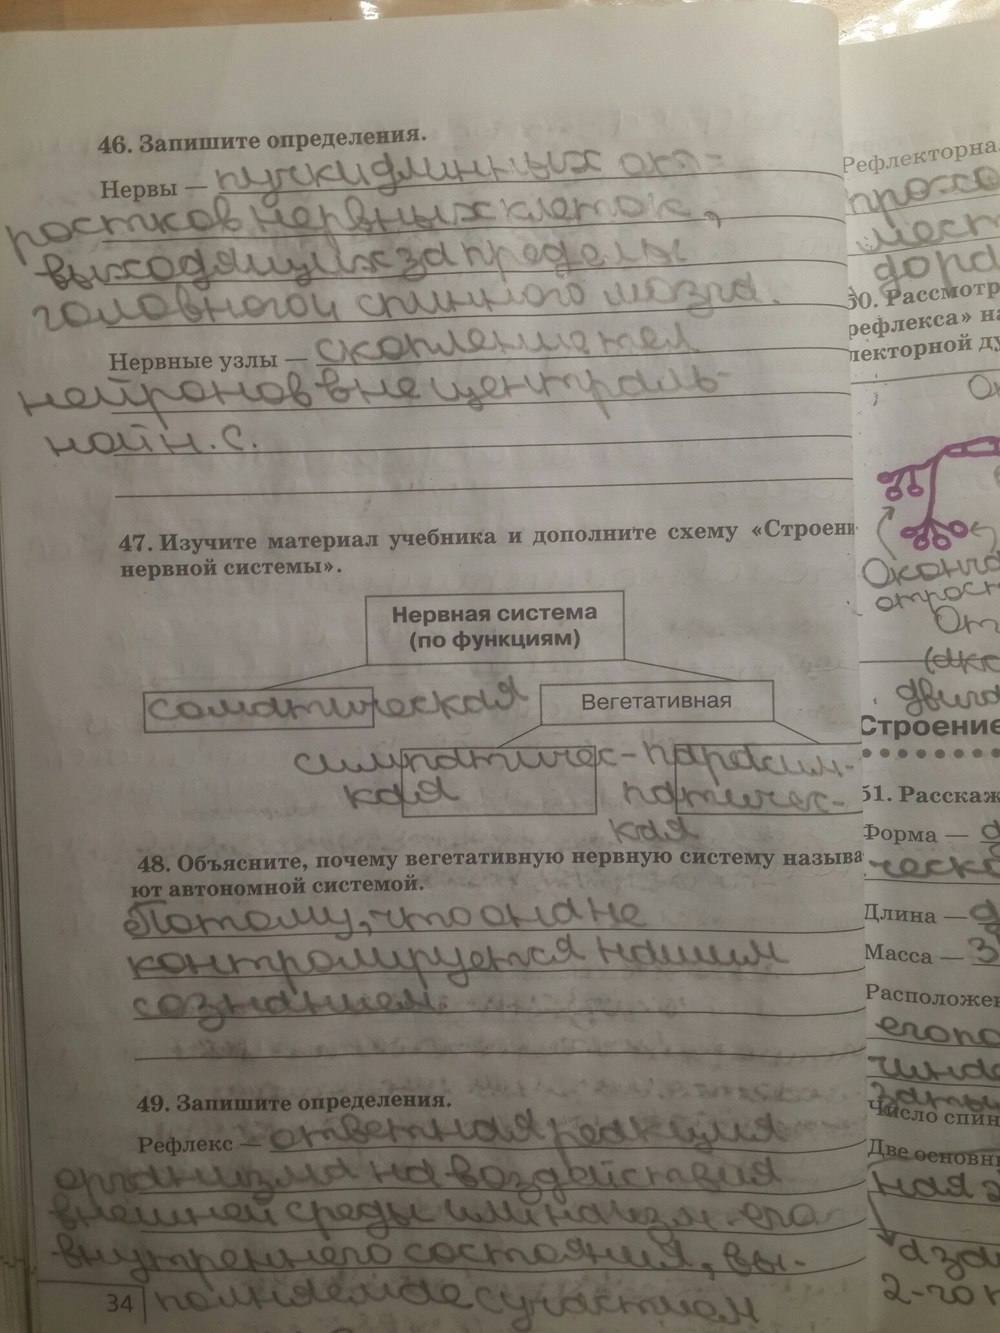 46. Запишите определения.
Нервы — пучки длинных от-
ростков нервных клеток,
выходящих за пределы
головного и спинного мозга.
Нервные узлы — скопление тел
нейронов вне централь-
ной н.с.
47. Изучите материал учебника и дополните схему «Строени
нервной системы».
Нервная система
(по функциям)
соматическая
Вегетативная
симпатичес-
кая
парасим-
патичес-
кая
48. Объясните, почему вегетативную нервную систему называ
ют автономной системой.
Потому, что она не
контролируется нашим
сознанием.
49. Запишите определения.
Рефлекс — ответная реакция
организма на воздействия
внешней среды или на изм. его
внутреннего состояния, вы-
полняемое с участием
34
Рефлекторна
прохо
мест
дора
50. Рассмотр
рефлекса» на
лекторной ду
Оконча
отрост
двига
Строение
51. Расскаж
Форма —
ческо
Длина —
Масса — 3
Расположен
его по
Число спин
Две основн
ная з